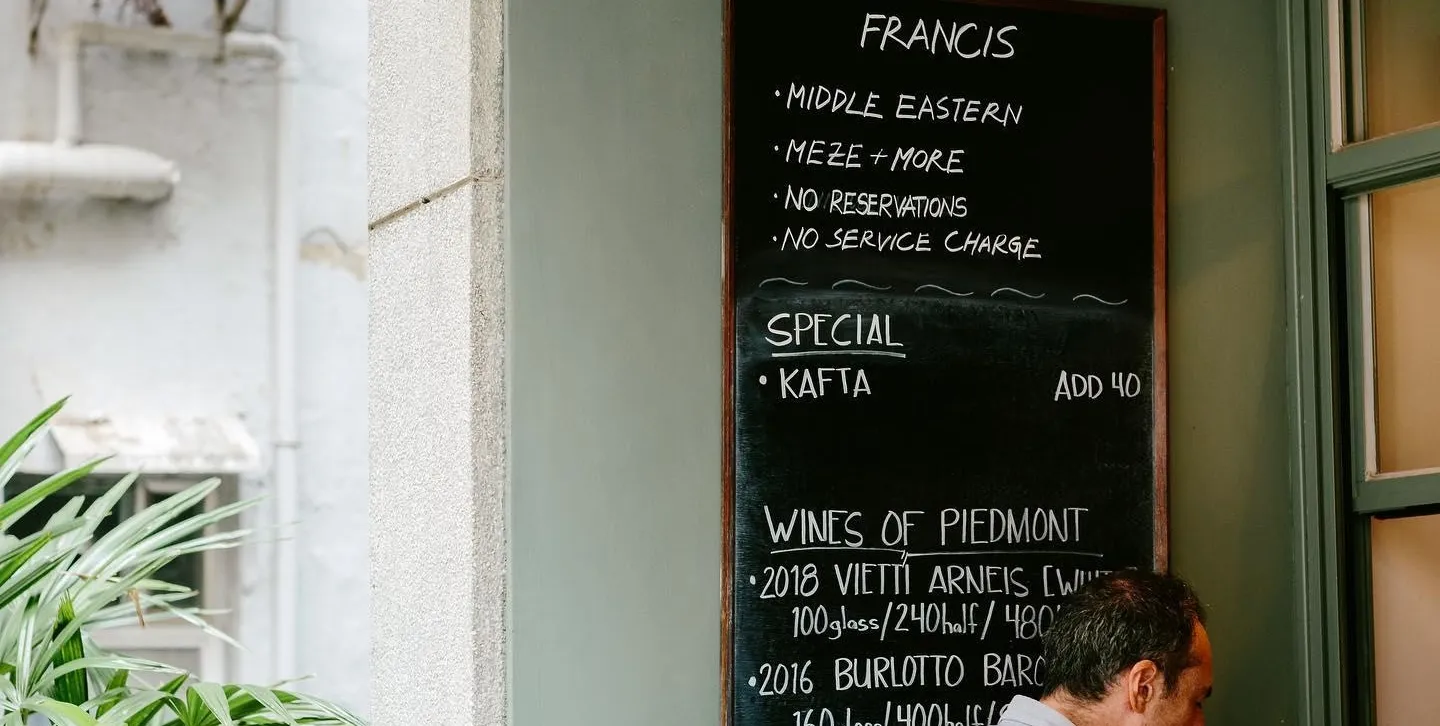 FRANCIS
• MIDDLE EASTERN
• MEZE + MORE
• NO RESERVATIONS
• NO SERVICE CHARGE
SPECIAL
• KAFTA ADD 40
WINES OF PIEDMONT
• 2018 VIETTI ARNEIS
100glass/240half/480
• 2016 BURLOTTO